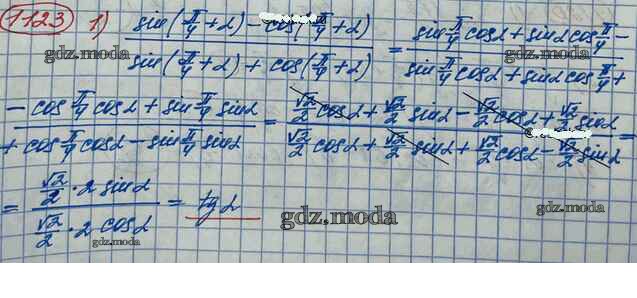 1123 1) sin(π/4+α)-cos(π/4+α) / sin(π/4+α)+cos(π/4+α) = sin π/4 cosα+sinα cos π/4 - / sin π/4 cosα+sinα cos π/4 +
gdz.moda gdz.moda
-cos π/4 cosα+sin π/4 sinα / +cos π/4 cosα-sin π/4 sinα = √2/2 cosα+√2/2 sinα-√2/2 cosα+√2/2 sinα / √2/2 cosα+√2/2 sinα+√2/2 cosα-√2/2 sinα =
= √2/2·2 sinα / √2/2·2 cosα = tgα
gdz.moda gdz.moda